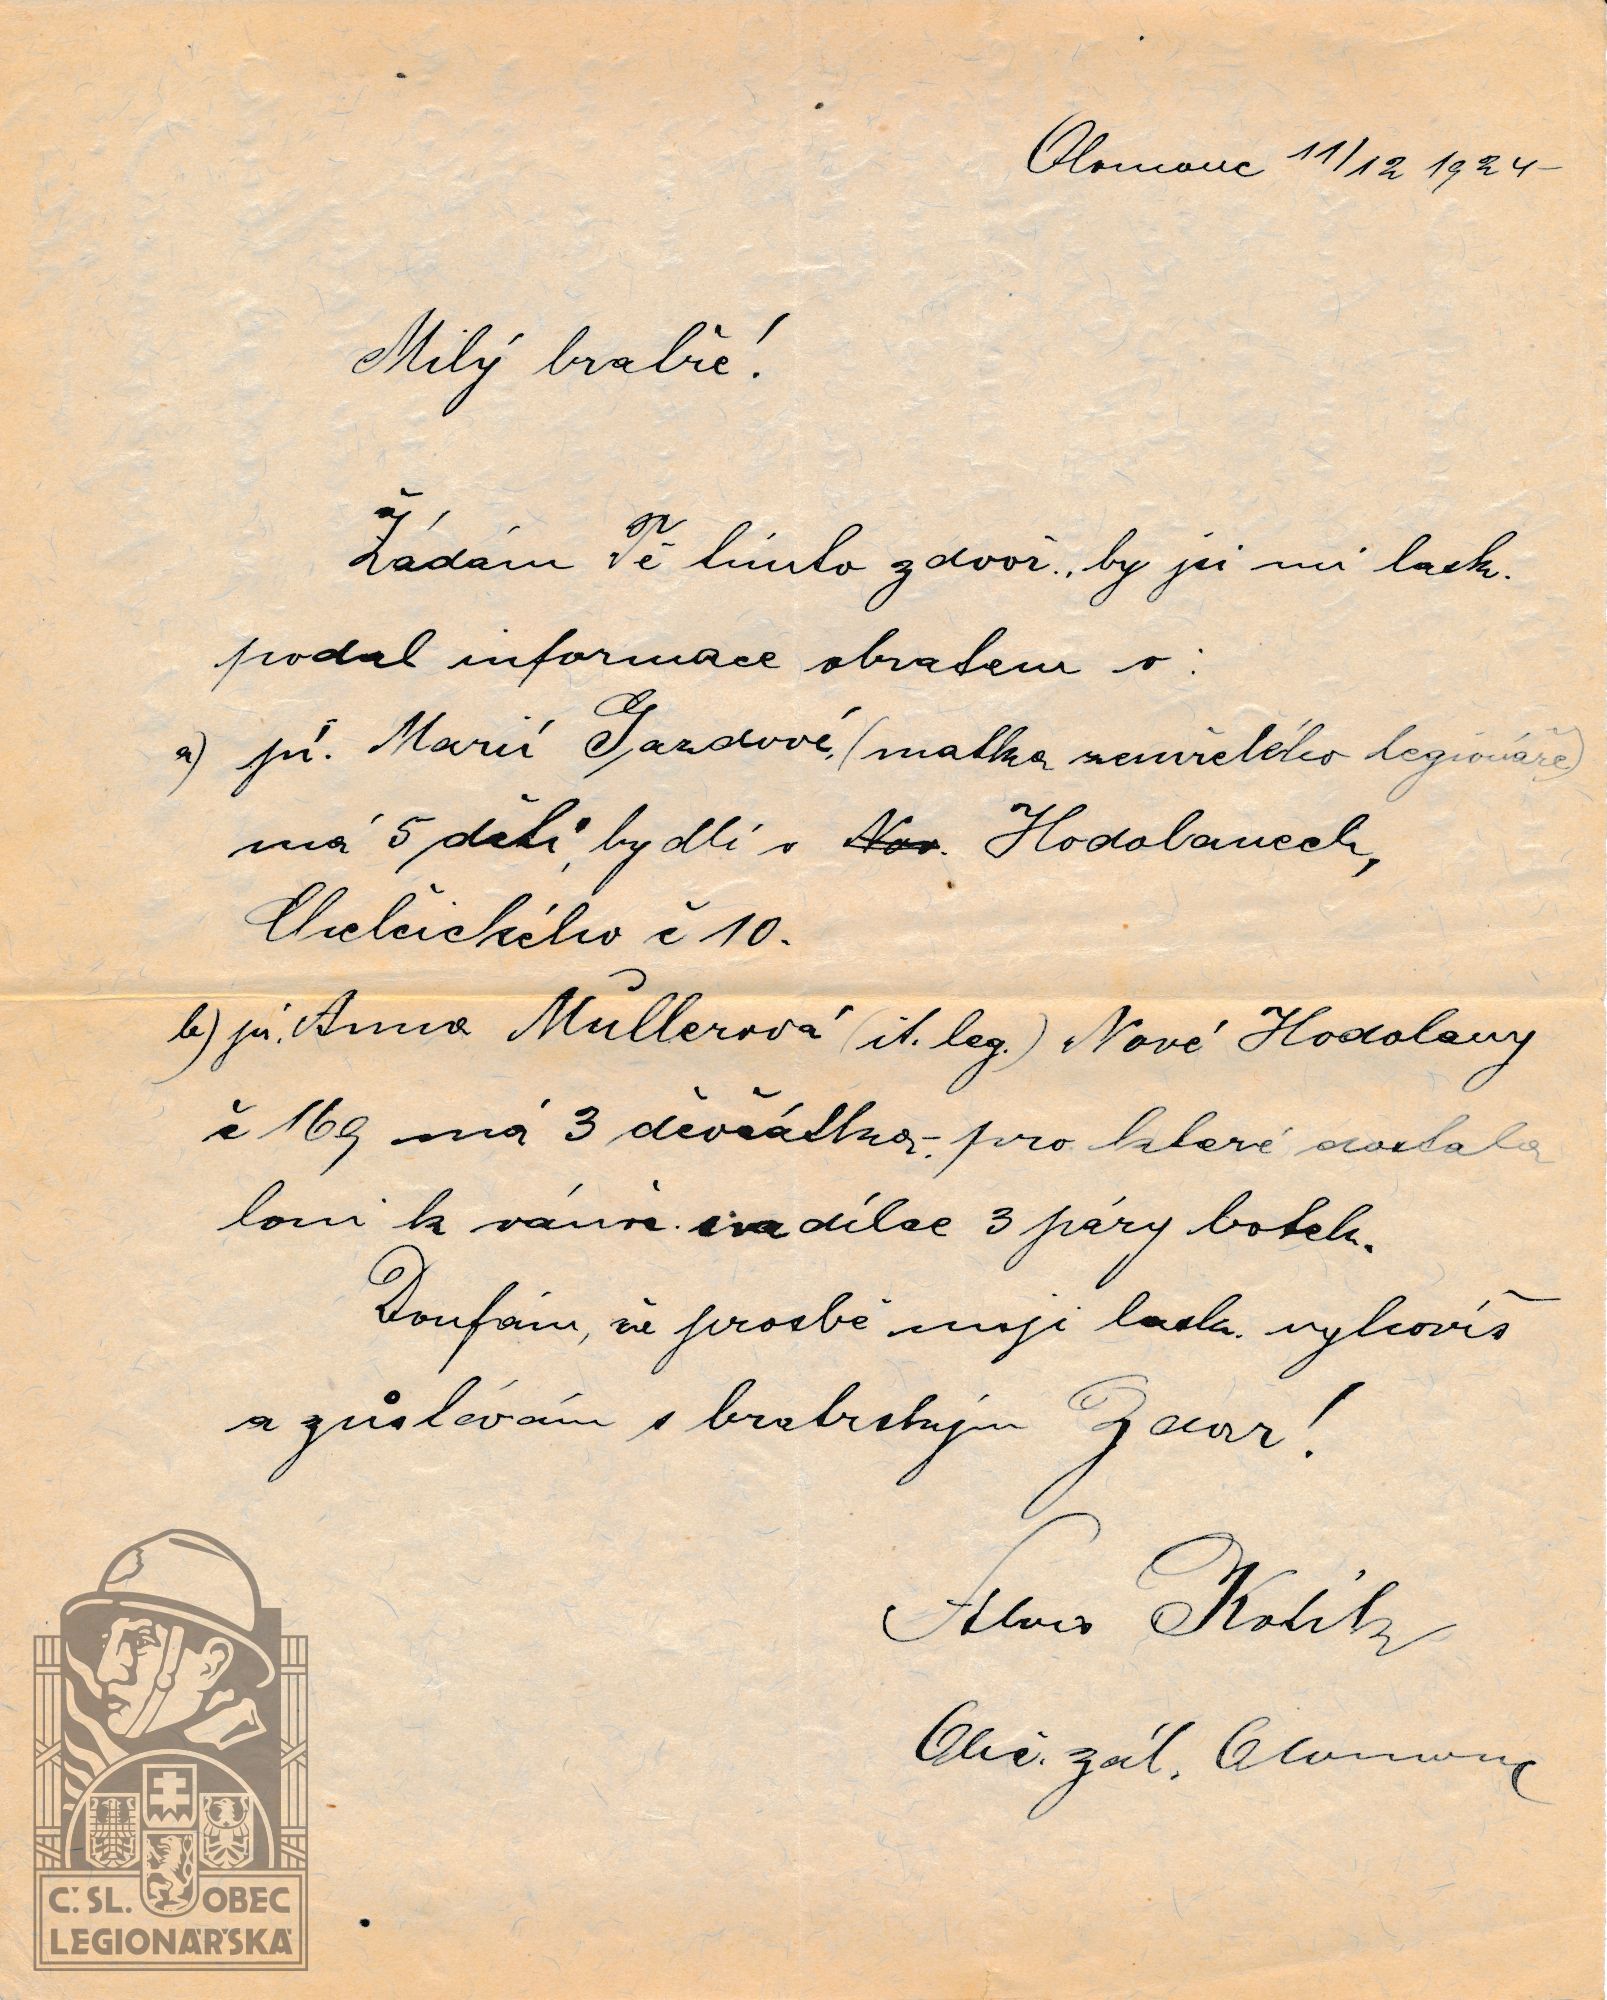 Olomouc 11/12 1924
Milý bratře!
Žádám Tě tímto zdvoř., by jsi mi lask.
podal informace obratem o:
a) pí. Marii Gazdové, (matka zemřelého legionáře)
má 5 dětí, bydlí v Nov. Hodolanech,
Chelčického č 10.
b) pí. Anna Müllerová (it. leg.) Nové Hodolany
č 169 má 3 děvčátka, pro které dostala
loni k vánoc. nadílce 3 páry botek.
Doufám, že prosbě moji lask. vyhovíš
a zůstávám s bratrským Zdar!
Alois Kotík
Obč. zál. Olomouc
Č.SL. OBEC
LEGIONÁŘSKÁ